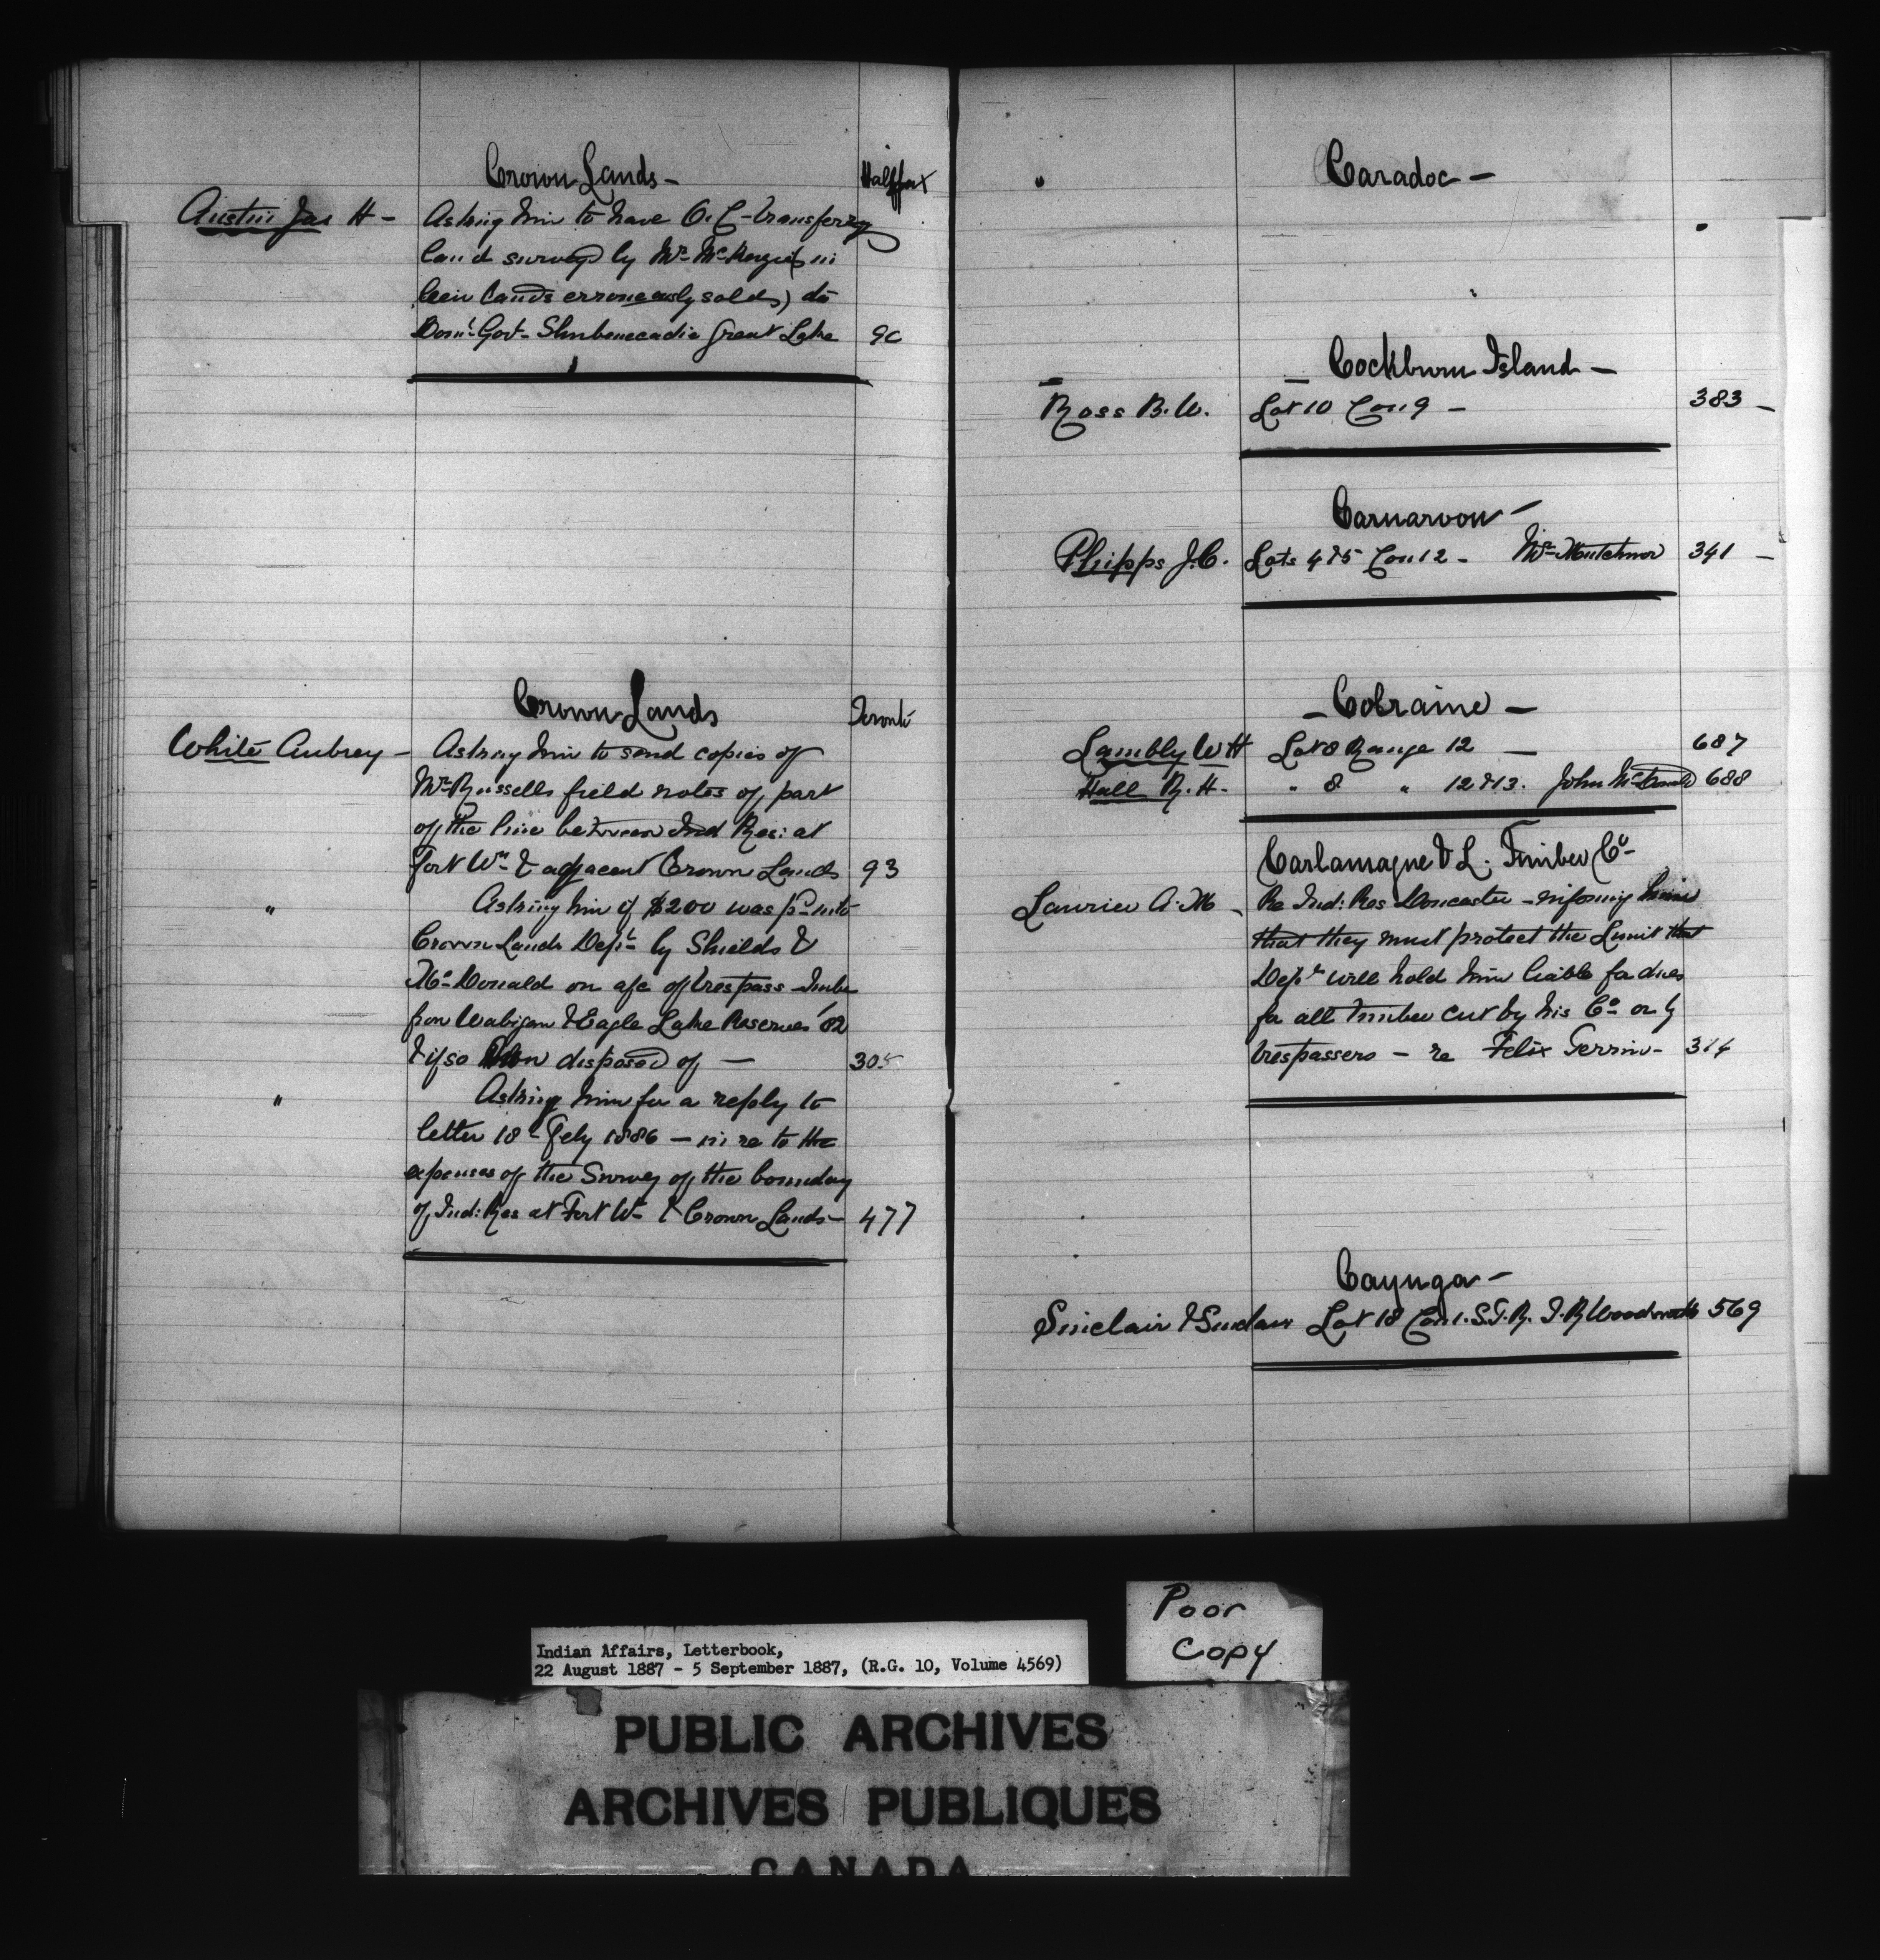 Crown Lands - Halifax
Austin Jas H - Asking him to have O.C. transferrg
land surveyd by Mr. McKenzie (in
lands erroneously solds) to
Domn Govt - Shubenecadie Great Lake 90
Crown Lands Toronto
White Aubrey - Asking him to send copies of
Mr. Russells field notes of part
of the line between Ind Res: at
Fort Wm & adjacent Crown Lands 93
" Asking him if $200 was pd into
Crown Lands Dept by Shields &
McDonald on a/c of trespass timber
from Wabigon & Eagle Lake Reserves '82
& if so how disposed of - 305
" Asking him for a reply to
letter 18th Feby 1886 - in re to the
expenses of the Survey of the boundary
of Ind: Res at Fort Wm & Crown Lands - 477
Caradoc -
Cockburn Island -
Ross B.W. Lot 10 Con 9 - 383 -
Carnarvon -
Phipps J.C. Lots 4 & 5 Con 12 - Mr. 341 -
- Colraine -
Lambly W H Lot 8 Range 12 - 687
Hall R. H. " 8 " 12 & 13. John 688
Carlamagne & L. Timber Co -
Laurier A. M - Re Ind: Res Doncaster - informing him
that they must protect the Limit that
Dept will hold him liable for dues
for all timber cut by his Co or by
trespassers - re Felix 314
Cayuga -
Sinclair & Sinclair Lot 18 Con 1. S.T.R. J. R Woodworth 569
Poor
Copy
Indian Affairs, Letterbook,
22 August 1887 - 5 September 1887, (R.G. 10, Volume 4569)
PUBLIC ARCHIVES
ARCHIVES PUBLIQUES
CANADA